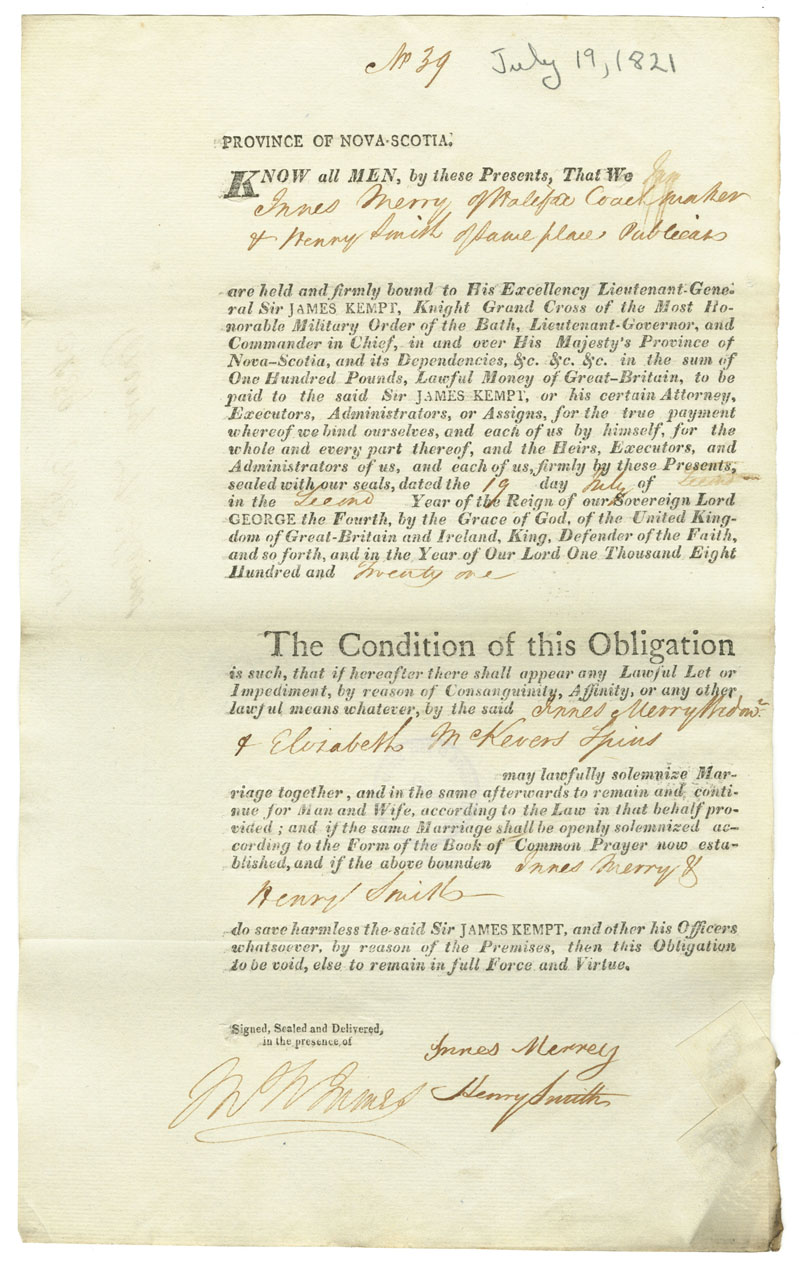 No 39 July 19, 1821
PROVINCE OF NOVA-SCOTIA.
KNOW all MEN, by these Presents, That We
Innes Merry of Halifax Coach maker
& Henry Smith of same place Publican
are held and firmly bound to His Excellency Lieutenant-Gene-
ral Sir JAMES KEMPT, Knight Grand Cross of the Most Ho-
norable Military Order of the Bath, Lieutenant-Governor, and
Commander in Chief, in and over His Majesty's Province of
Nova-Scotia, and its Dependencies, &c. &c. &c. in the sum of
One Hundred Pounds, Lawful Money of Great-Britain, to be
paid to the said Sir JAMES KEMPT, or his certain Attorney,
Executors, Administrators, or Assigns, for the true payment
whereof we bind ourselves, and each of us by himself, for the
whole and every part thereof, and the Heirs, Executors, and
Administrators of us, and each of us, firmly by these Presents,
sealed with our seals, dated the 19 day July of
in the Second Year of the Reign of our Sovereign Lord
GEORGE the Fourth, by the Grace of God, of the United King-
dom of Great-Britain and Ireland, King, Defender of the Faith,
and so forth, and in the Year of Our Lord One Thousand Eight
Hundred and Twenty one
The Condition of this Obligation
is such, that if hereafter there shall appear any Lawful Let or
Impediment, by reason of Consanguinity, Affinity, or any other
lawful means whatever, by the said Innes Merry Widowr
& Elisabeth McKevers Spins
may lawfully solemnize Mar-
riage together, and in the same afterwards to remain and conti-
nue for Man and Wife, according to the Law in that behalf pro-
vided; and if the same Marriage shall be openly solemnized ac-
cording to the Form of the Book of Common Prayer now esta-
blished, and if the above bounden Innes Merry &
Henry Smith
do save harmless the said Sir JAMES KEMPT, and other his Officers
whatsoever, by reason of the Premises, then this Obligation
to be void, else to remain in full Force and Virtue.
Signed, Sealed and Delivered,
in the presence of
Innes Merrey
Henry Smith